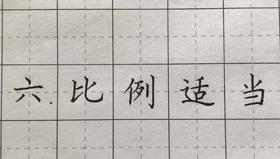 六.比例适当